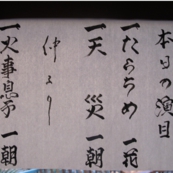 本日の演目
一たらちめ 一花
一天災 一朝
仲より
一火事息子 一朝